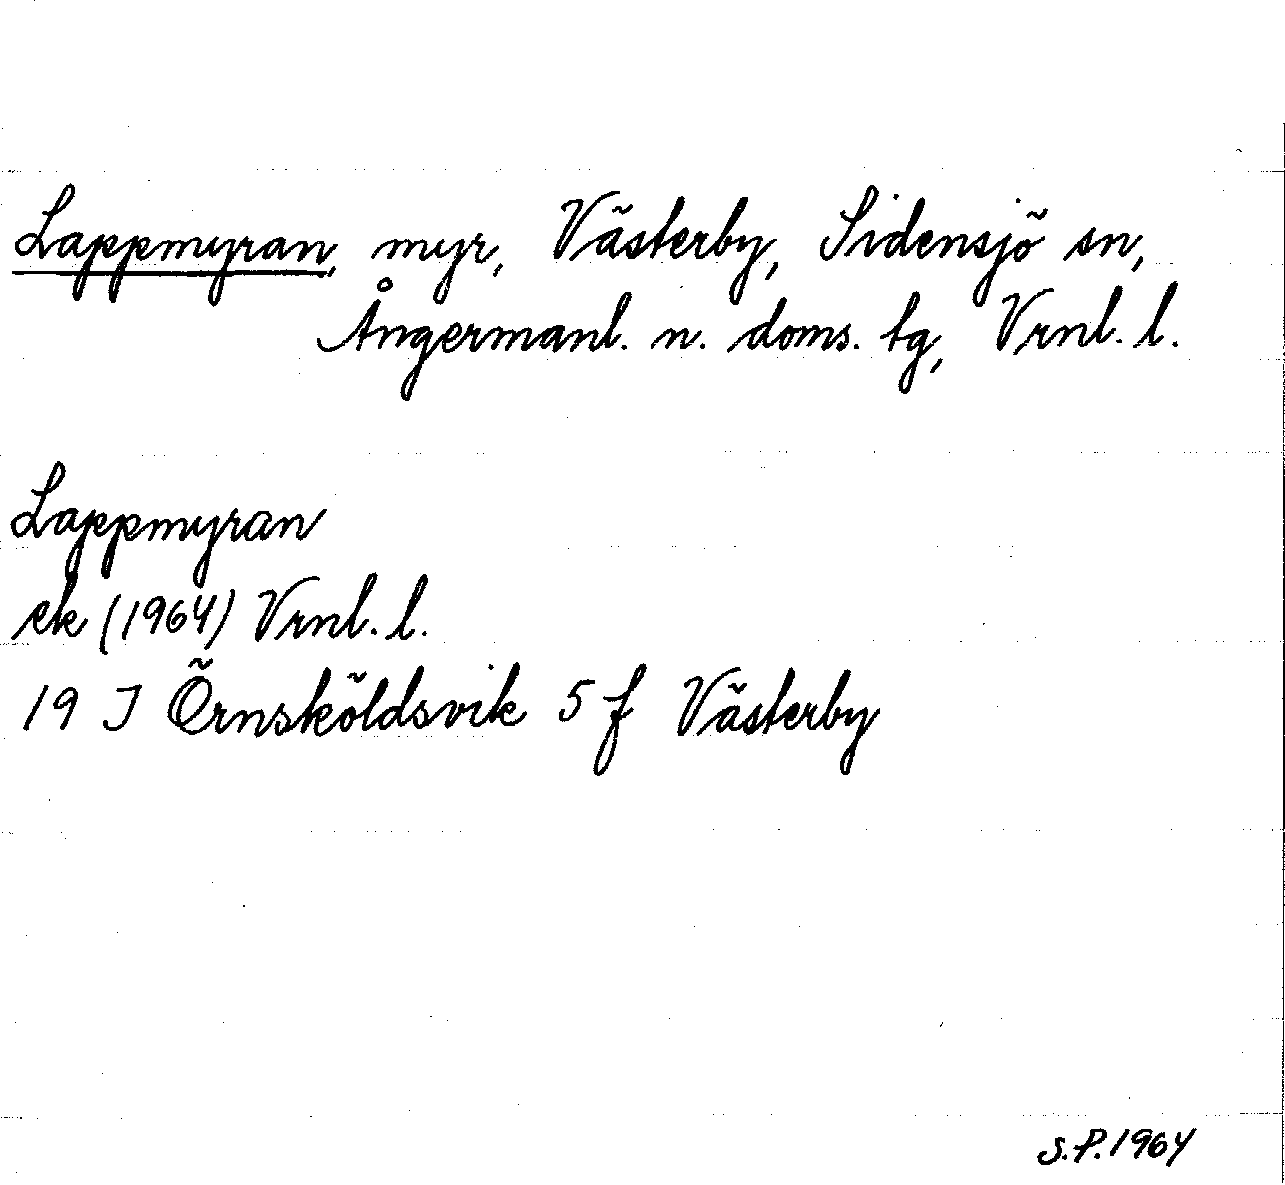 Lappmyran, myr, Västerby, Sidensjö sn,
Ångermanl. n. doms. tg, Vrnl. l.
Lappmyran
ek (1964) Vrnl. l.
19 J Örnsköldsvik 5 f Västerby
S.P. 1964